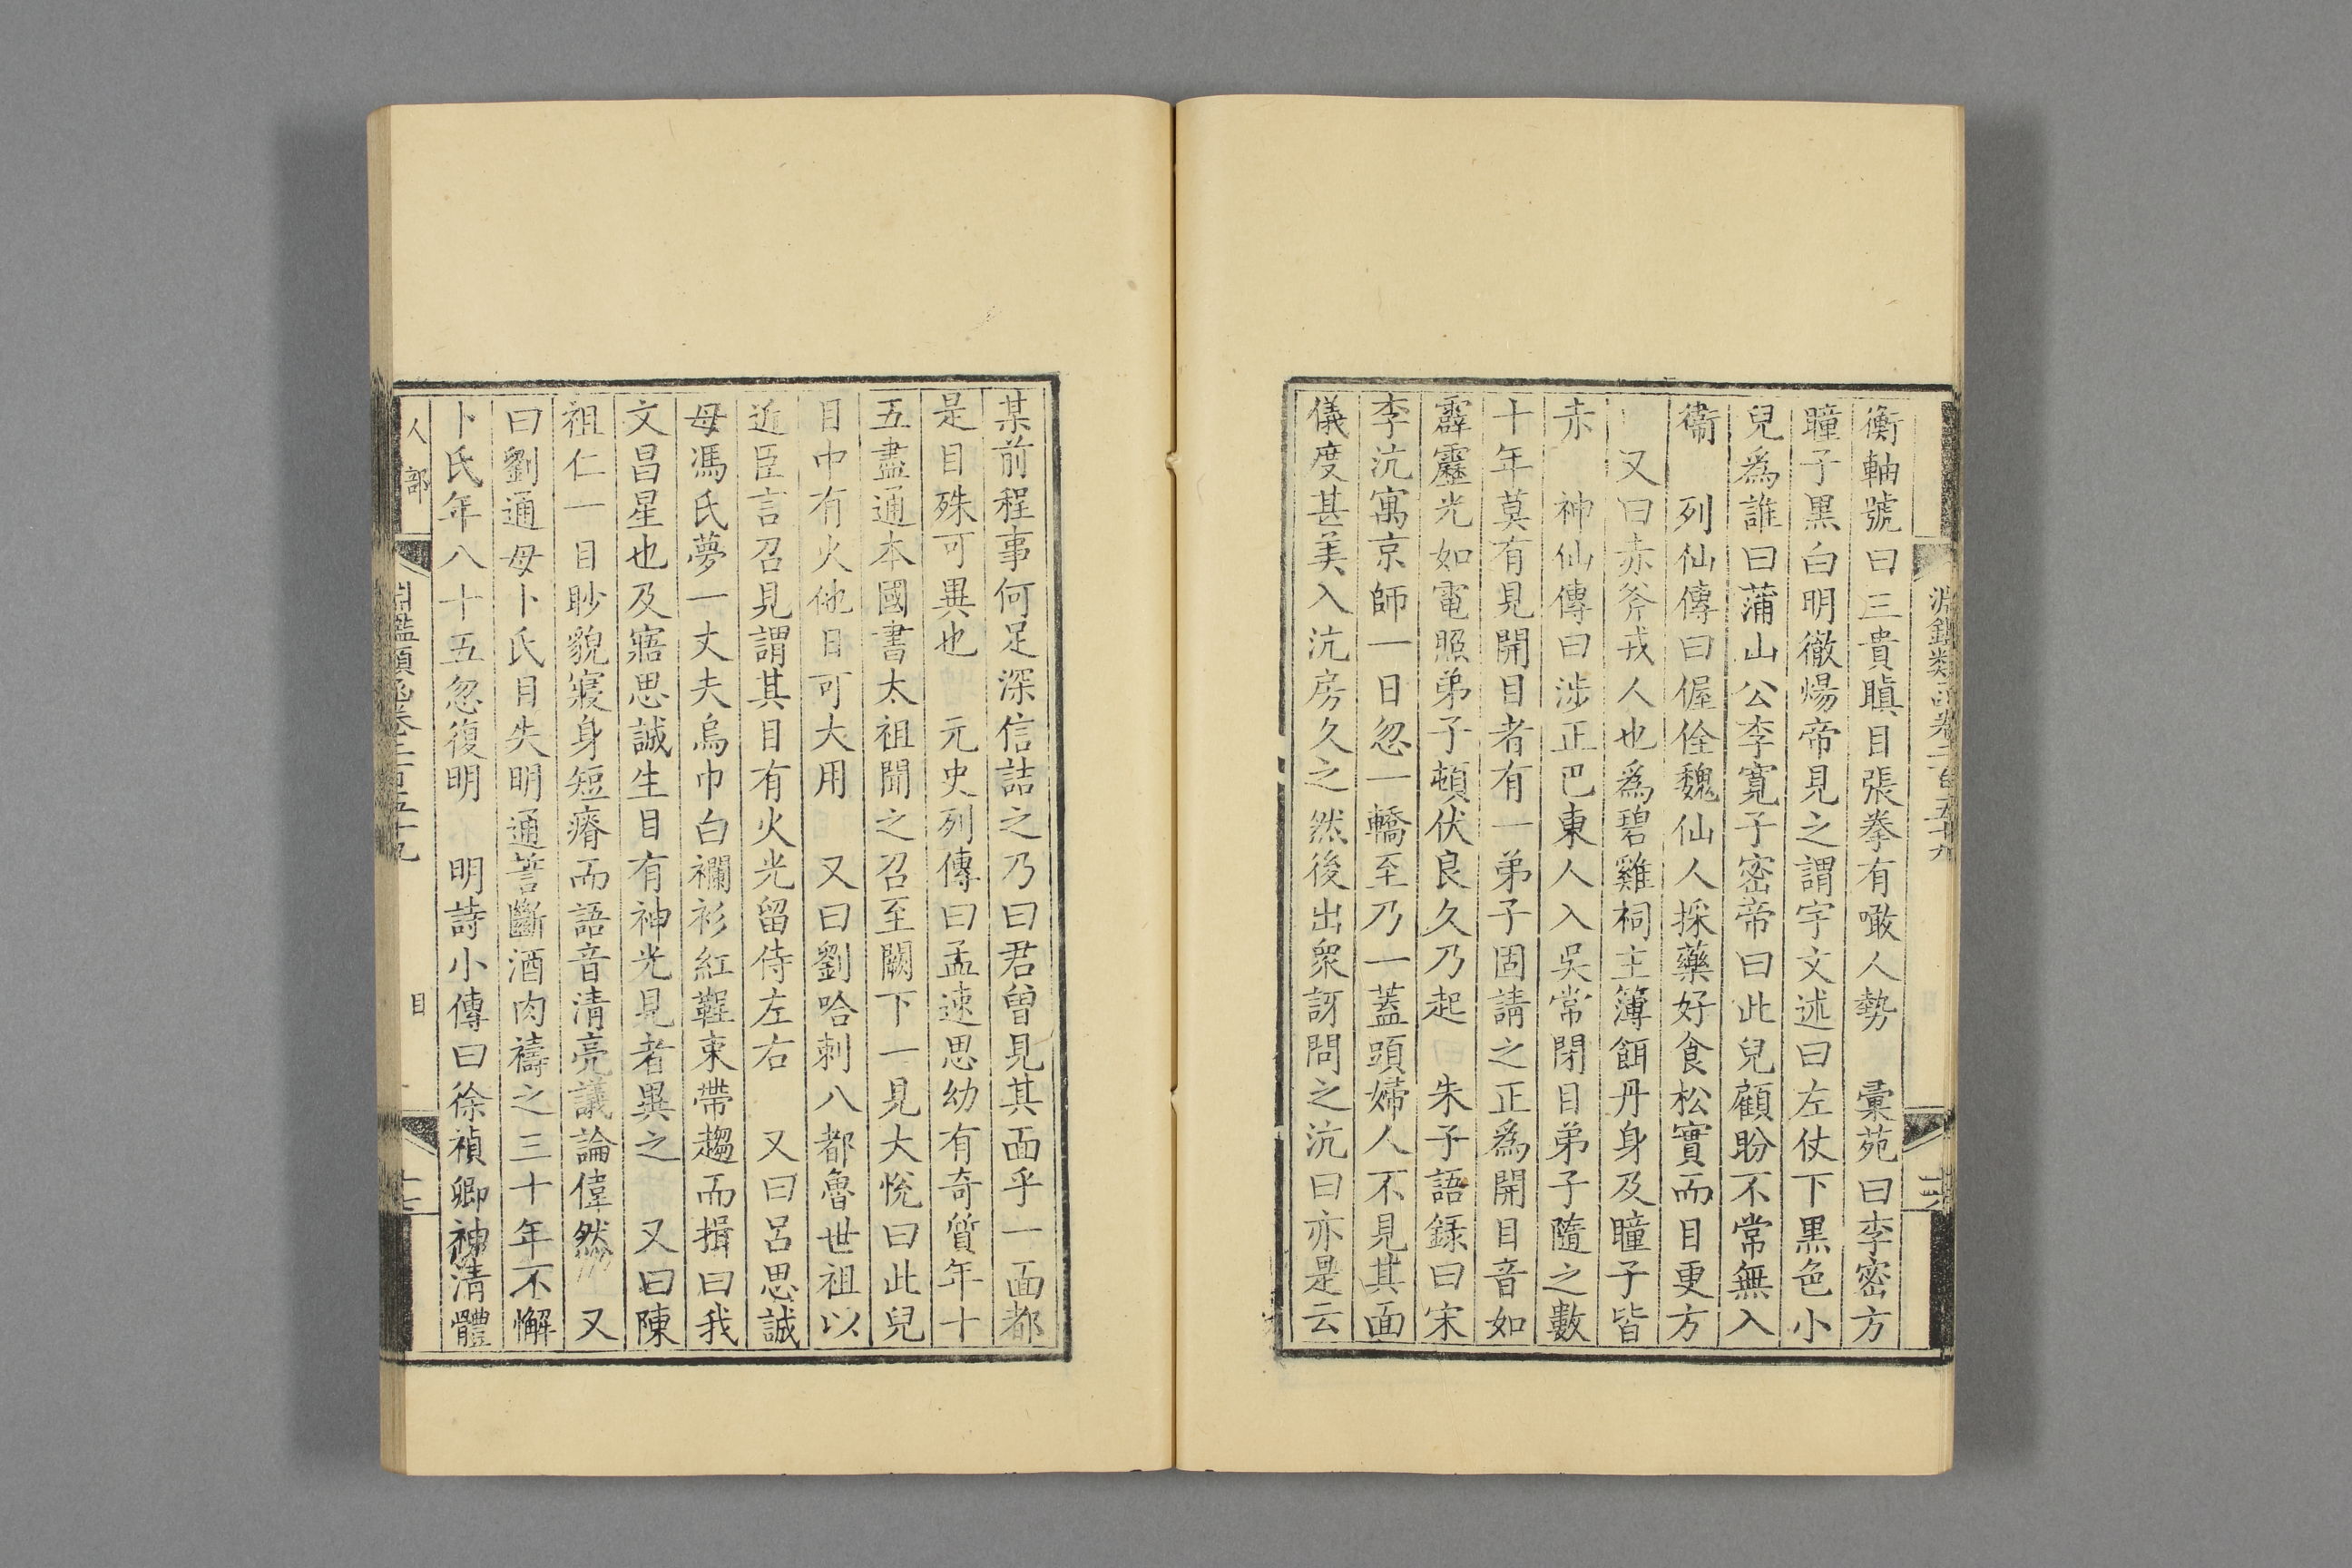 衡軸號曰三貴瞋目張拳有噉人勢　彙苑曰李密方
瞳子黒白明徹煬帝見之謂宇文述曰左仗下黒色小
兒爲誰曰蒲山公李寛子密帝曰此兒顧盼不常無入
衞　列仙傳曰偓佺魏仙人採藥好食松實而目更方
　又曰赤斧戎人也爲碧雞祠主簿餌丹身及瞳子皆
赤　神仙傳曰涉正巴東人入吳常閉目弟子隨之數
十年莫有見開目者有一弟子固請之正爲開目音如
霹靂光如電照弟子頓伏良久乃起　朱子語錄曰宋
李沆寓京師一日忽一轎至乃一蓋頭婦人不見其面
儀度甚美入沆房久之然後出衆訝問之沆曰亦是云
某前程事何足深信詰之乃曰君曾見其面乎一面都
是目殊可異也　元史列傳曰孟速思幼有奇質年十
五盡通本國書太祖聞之召至闕下一見大悅曰此兒
目中有火他日可大用　又曰劉哈剌八都魯世祖以
近臣言召見謂其目有火光留侍左右　又曰呂思誠
母馮氏夢一丈夫烏巾白襴衫紅鞓束帶趨而揖曰我
文昌星也及寤思誠生目有神光見者異之　又曰陳
祖仁一目眇貌寢身短瘠而語音清亮議論偉然　又
曰劉通母卜氏目失明通誓斷酒肉禱之三十年不懈
卜氏年八十五忽復明　明詩小傳曰徐禎卿神清體
人部
淵鑑類函卷二百五十九
目